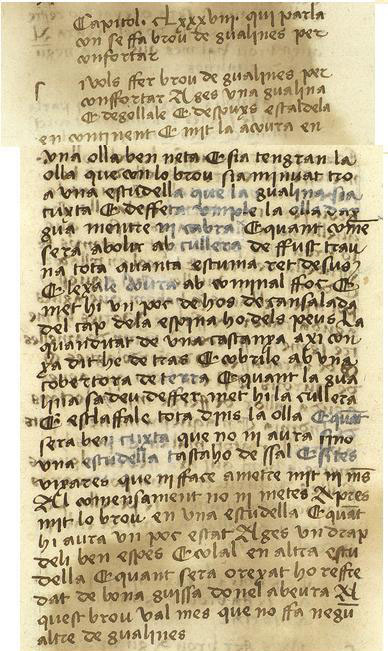 Capitol · CLXXXVIII · qui parla
con se ffa brou de gualines per
confortar
Si vols ffer brou de gualines per
conffortar Ages una gualina
E degollale E despuys escaldela
en continent E mit la a coura en
vna olla ben neta E sia tengran la
olla que con lo brou sia minuat tro
a vna escudella que la gualina sia
cuyta E deffeta vmple la olla daygua
gua menure ni cabra E quant come
sera abolut ab cullera de ffust trau
na tota quanta escuma ret desus
E lexale coura ab cominal ffoc E
met hi un poc de hos de cansalada
del cap dela espina ho dels peus La
quanduat de vna castanya axi con
ya dit he de tras E cobrile ab vna
cobertora de terra E quant la gua
lina sa deu deffer met hi la cullera
E esclaffale tota dins la olla E quãt
sera ben cuyta que no ni aura sino
vna escudella tastaho de ssal E si tes
vixares que ni fface a metre mit ni mes
Al comensament no ni metes Apres
mit lo brou en vna escudella E quãt
hi aura un poc estat Ages un drap
deli ben espes E colal en altra escu
della E quant sera orexat ho reffre
dat de bona guissa donel abeura A
quest brou val mes que no ffa negu
altre de gualines